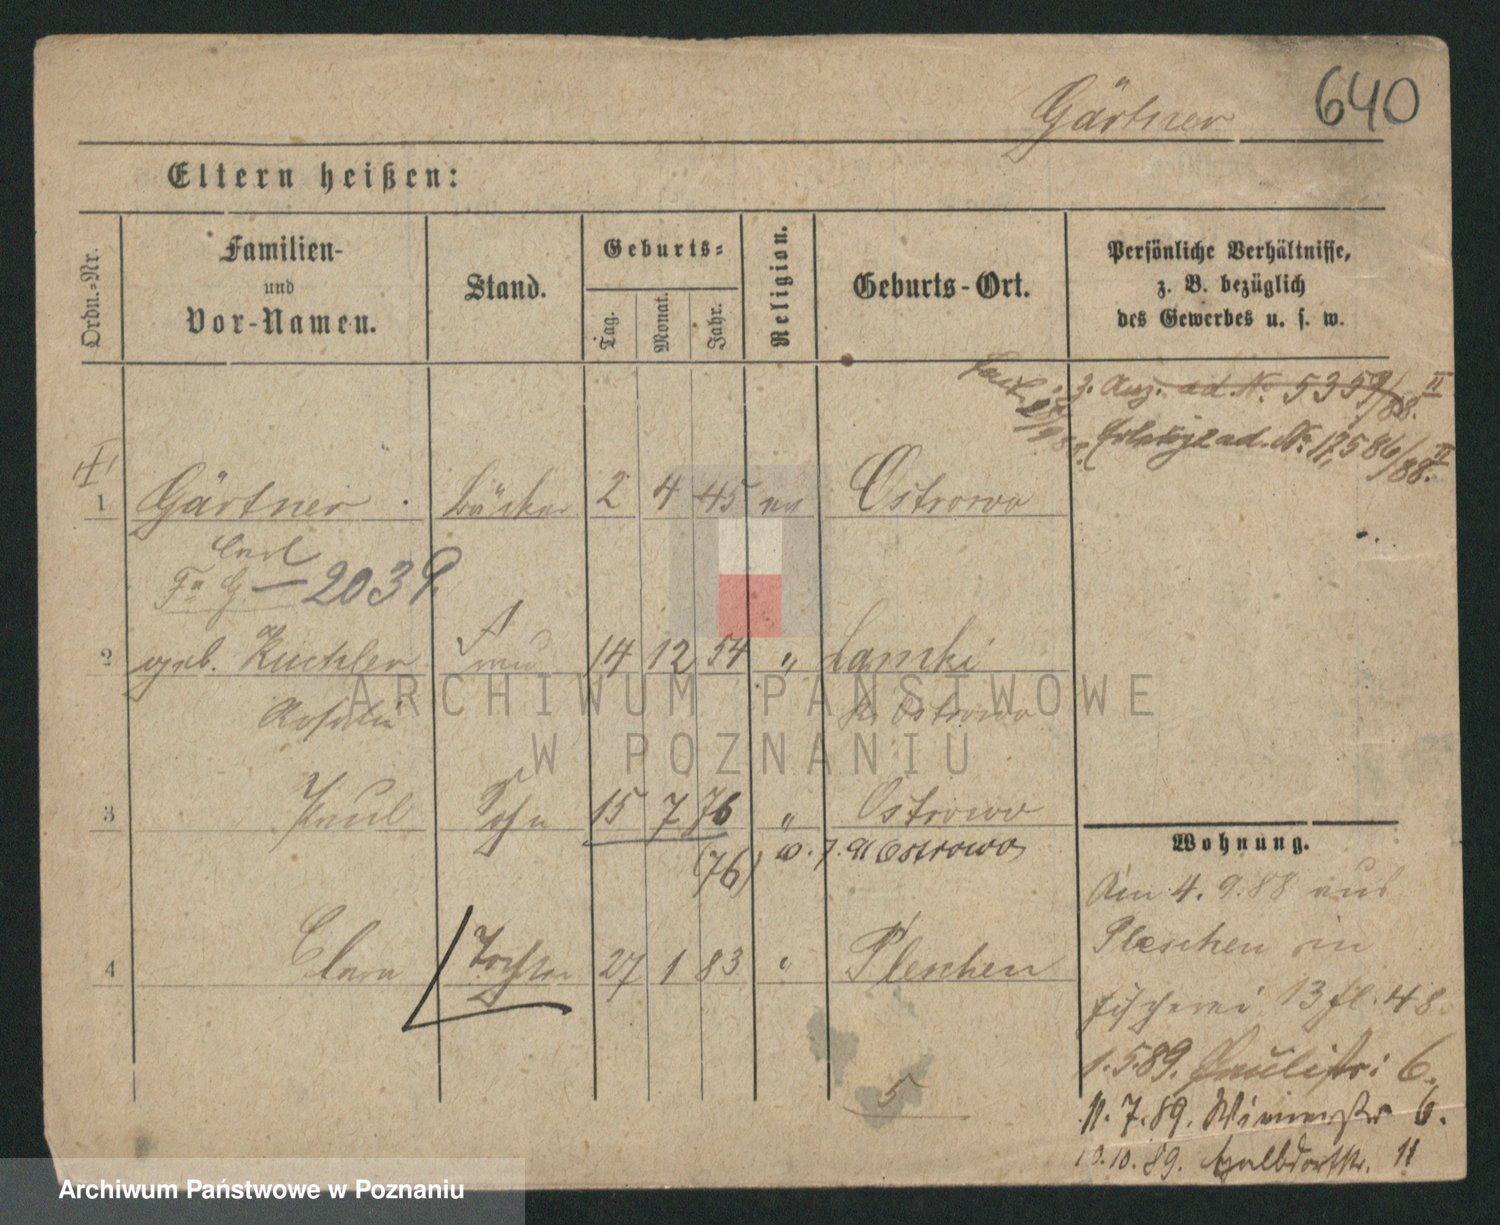 Gärtner 640
Eltern heißen:
Ordn.-Nr. Familien- und Vor-Namen. Stand. Geburts- Tag. Monat. Jahr. Religion. Geburts-Ort. Persönliche Verhältnisse, z. B. bezüglich des Gewerbes u. s. w.
3. Anz. ad. No. 5359/88. II
ad. No. 12586/88. II
1 Gärtner Bäcker 2 4 45 ev Ostrowo
Carl
Fa G — 2039.
2 geb. Kuchler Frau 14 12 54 " Lamki
Rosalie Kr. Ostrowo
3 Paul Sohn 15 7 76 " Ostrowo
(76) Ostrowo
4 Clara Tochter 27 1 83 " Pleschen
5
Wohnung.
Am 4. 9. 88 aus
Pleschen in
Fischerei 13 fl. 48.
1. 5. 89. Paulistr: 6.
11. 7. 89. Wienerstr 6.
10. 10. 89. Halbdorfstr. 11
ARCHIWUM PAŃSTWOWE
W POZNANIU
Archiwum Państwowe w Poznaniu